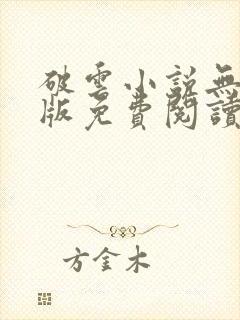 破雲小說無
版免費閱讀
方金木